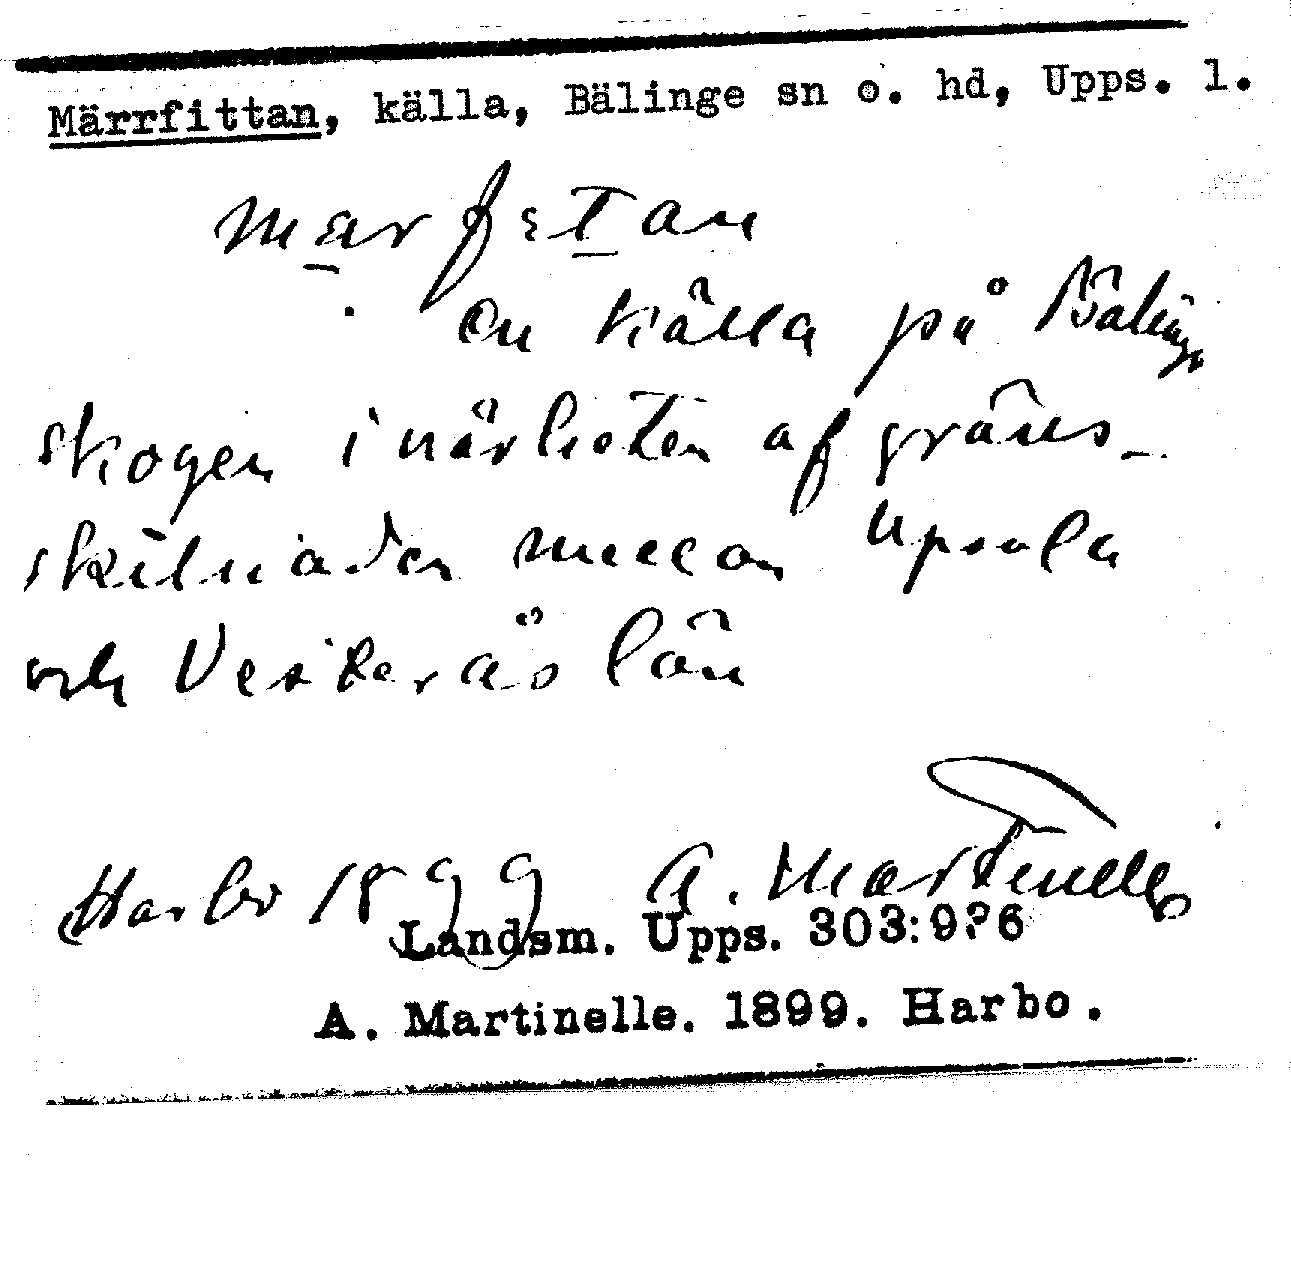 Märrfittan, källa, Bälinge sn o. hd, Upps. l.
en källa på Bälinge
skogen i närheten af gräns-
skilnaden mellan Upsala
och Vesterås län
Harbo 1899 A. Martinelle
Landsm. Upps. 303:9?6
A. Martinelle. 1899. Harbo.